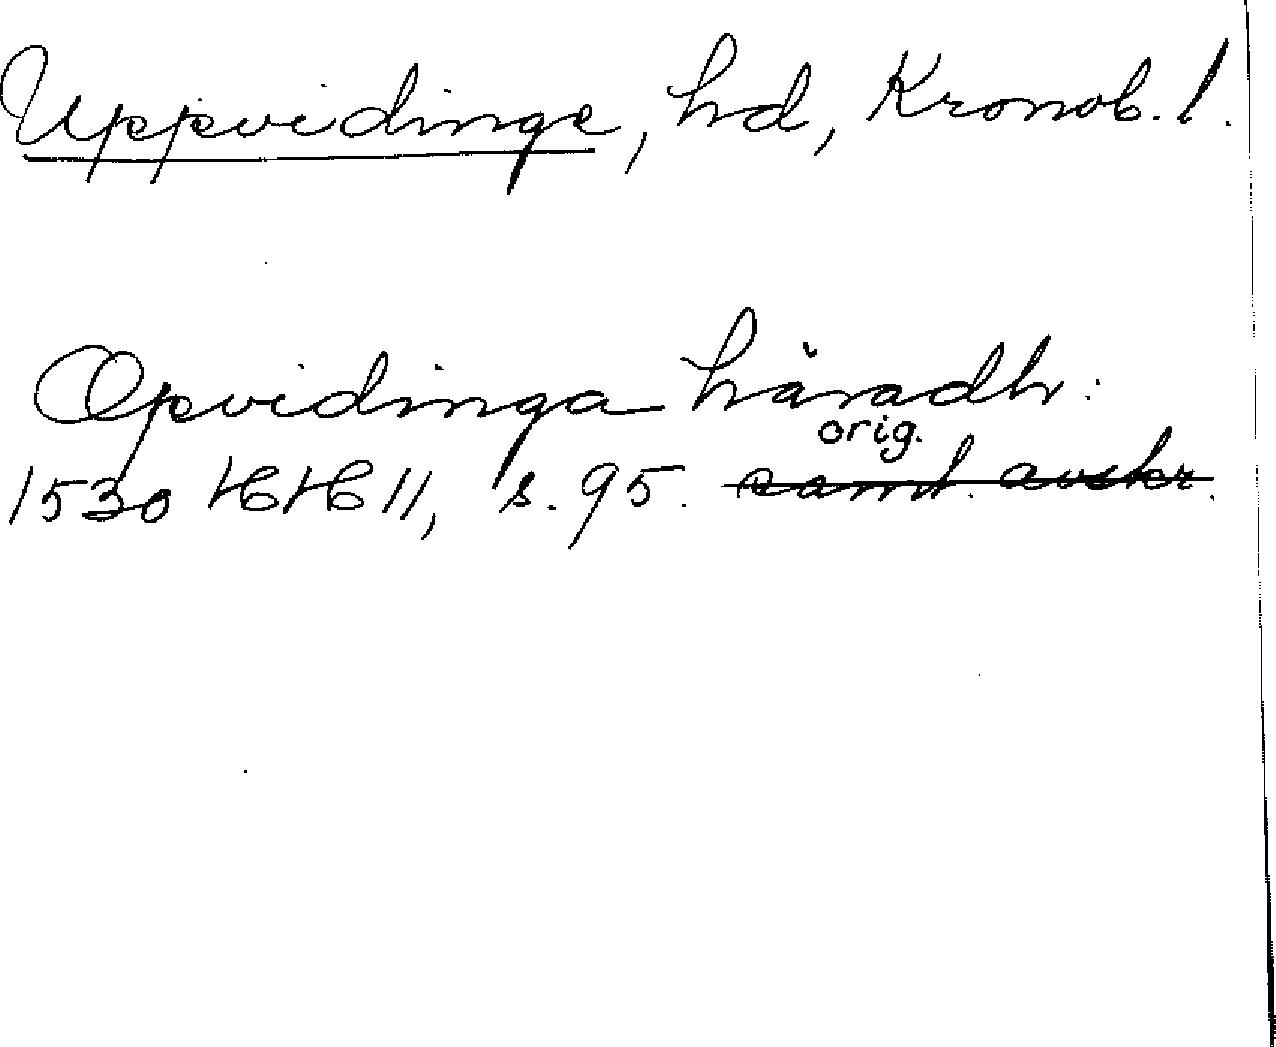 Uppvidinge, hd, Kronob. l.
Opvidinga häradh:
orig.
1530 HH 11, s. 95. samt. avskr.